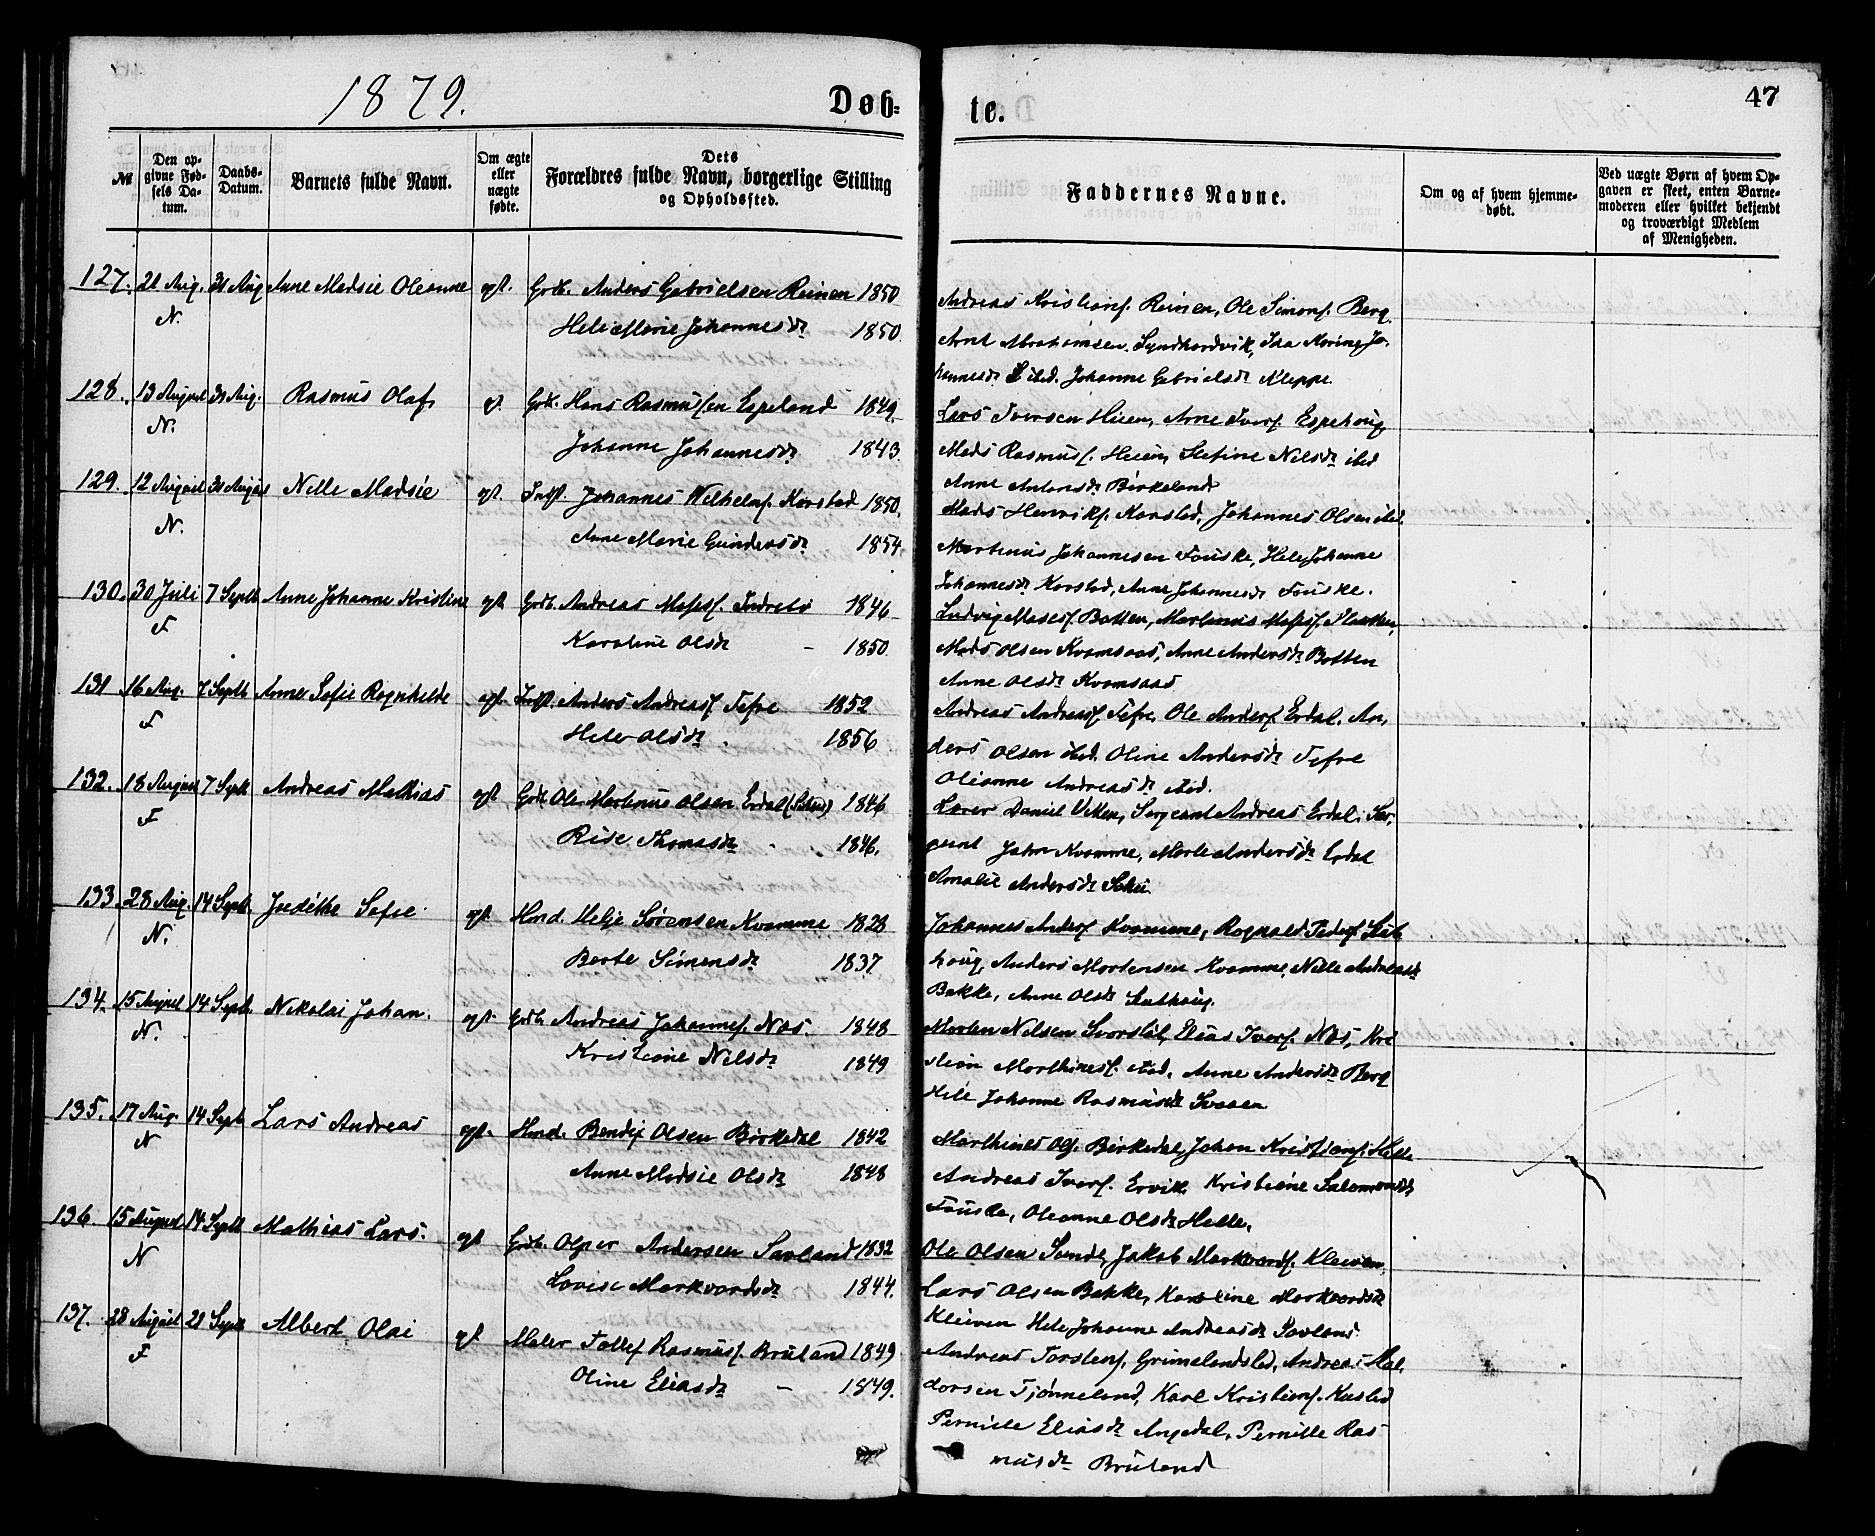 1879.
Døb-
te.
47
№
Den op-
givne Fød-
sels Da-
tum.
Daabs-
Datum.
Barnets fulde Navn.
Om ægte
eller
uægte
fødte.
Dets
Forældres fulde Navn, borgerlige Stilling
og Opholdssted.
Faddernes Navne.
Om og af hvem hjemme-
døbt.
Ved uægte Børn af hvem Op-
gaven er skeet, enten Barne-
moderen eller hvilket bekjendt
og troværdigt Medlem
af Menigheden.
127. 21 Aug. 31 Aug Anne Madsie Oleanne egt. Grdb. Anders Gabrielsen Reinen 1850
N. Hele Marie Johannesdr 1850.
Andreas Kristians. Reinen, Ole Simons. Berg
Arnt Abrahamsen Syndhordvik, Ida Karine Jo-
hannesdr ibid. Johanne Gabrielsdr Kleppe.
128. 13 August 31 Aug. Rasmus Olaf egt. Grdb. Hans Rasmussen Espeland 1849.
N. Johanne Johannesdr 1843.
Lars Iversen Hieen, Arne Ivers. Espehoug
Mads Rasmuss. Heien, Nilsdr ibid
Anne Antonsdr Birkeland.
129. 12 August 31 August Nille Madsie egt. Indst. Johannes Wilhelms. Korstad 1850.
N. Anne Marie Gundersdr 1854.
Mads Henriks. Korstad, Johannes Olsen ibid.
Martinus Johannesen Fouske, Hele Johanne
Johannesdr Korstad, Anne Johannesdr Fouske.
130. 30 Juli 7 Septb Anne Johanne Kristine egt. Grdb. Andreas Moses. Indrebø 1846
F Karoline Olsdr - 1850.
Ludvig Moses. Botten, Martinus Moses.
Mads Olsen Kvamsaas, Anne Andersdr Botten
Anne Olsdr Kvamsaas
131 16 Aug. 7 Septb Anne Sofie Ragnhilde egt. Indst. Anders Andreass. Tefre 1852
F Hele Olsdr 1856
Andreas Andreass. Tefre, Ole Anders. Erdal, An-
ders Olsen ibid. Oline Andersdr Tefre
Oleanne Andreasdr ibid.
132. 18 August 7 Septb Andreas Mathias egt Grdb Ole Martinus Olsen Erdal 1846
F Thomasdr 1846.
Lærer Daniel Viken, Sergeant Andreas Erdal, Ser-
geant John Kvamme, Marte Andersdr Erdal
Amalie Andersdr
133. 28 Aug. 14 Septb. Judithe Sofie egt. Hmd. Helje Sørensen Kvamme 1828
N. Berte Simensdr 1837
Johannes Anders. Kvamme, Rognald Peders.
houg, Anders Mortensen Kvamme, Nille Andreasdr
Bakke, Anne Olsdr
134. 15 August 14 Septb. Nikolai Johan. egt. Grdb. Andreas Johannes. Nøs. 1848
N. Kristiane Nilsdr 1849
Morten Nilsen Elias Ivers. Nøs, Kri-
stian Marthines. ibid. Anne Andersdr Berg
Hele Johanne Rasmusdr
135. 17 Aug. 14 Septb Lars Andreas egt. Hmd. Bendix Olsen Birkedal 1842
N Anne Madsie Olsdr 1848
Marthines Ols. Birkedal, Johan Kristians. Helle
Andreas Ivers. Ervik. Kristiane Salomonsdr
Fouske, Oleanne Olsdr Helle.
136. 15 August 14 Septb Mathias Lars. egt Grdb. Andersen Savland 1832
N Lovise Markvardsdr 1844.
Ole Olsen Sande, Jakob Markvards. Kleiven,
Lars Olsen Bakke, Karoline Markvardsdr
Kleiven Hele Johanne Andreasdr Savland.
137. 28 August 21 Septb Albert Olai egt Maler Tollef Rasmuss. Bruland 1849
F Oline Eliasdr - 1849.
Andreas Torstens. Grimelandslid, Andreas Hal-
dorsen Tjønneland, Karl Kristians.
Pernille Eliasdr Angedal, Pernille Ras
musdr Bruland